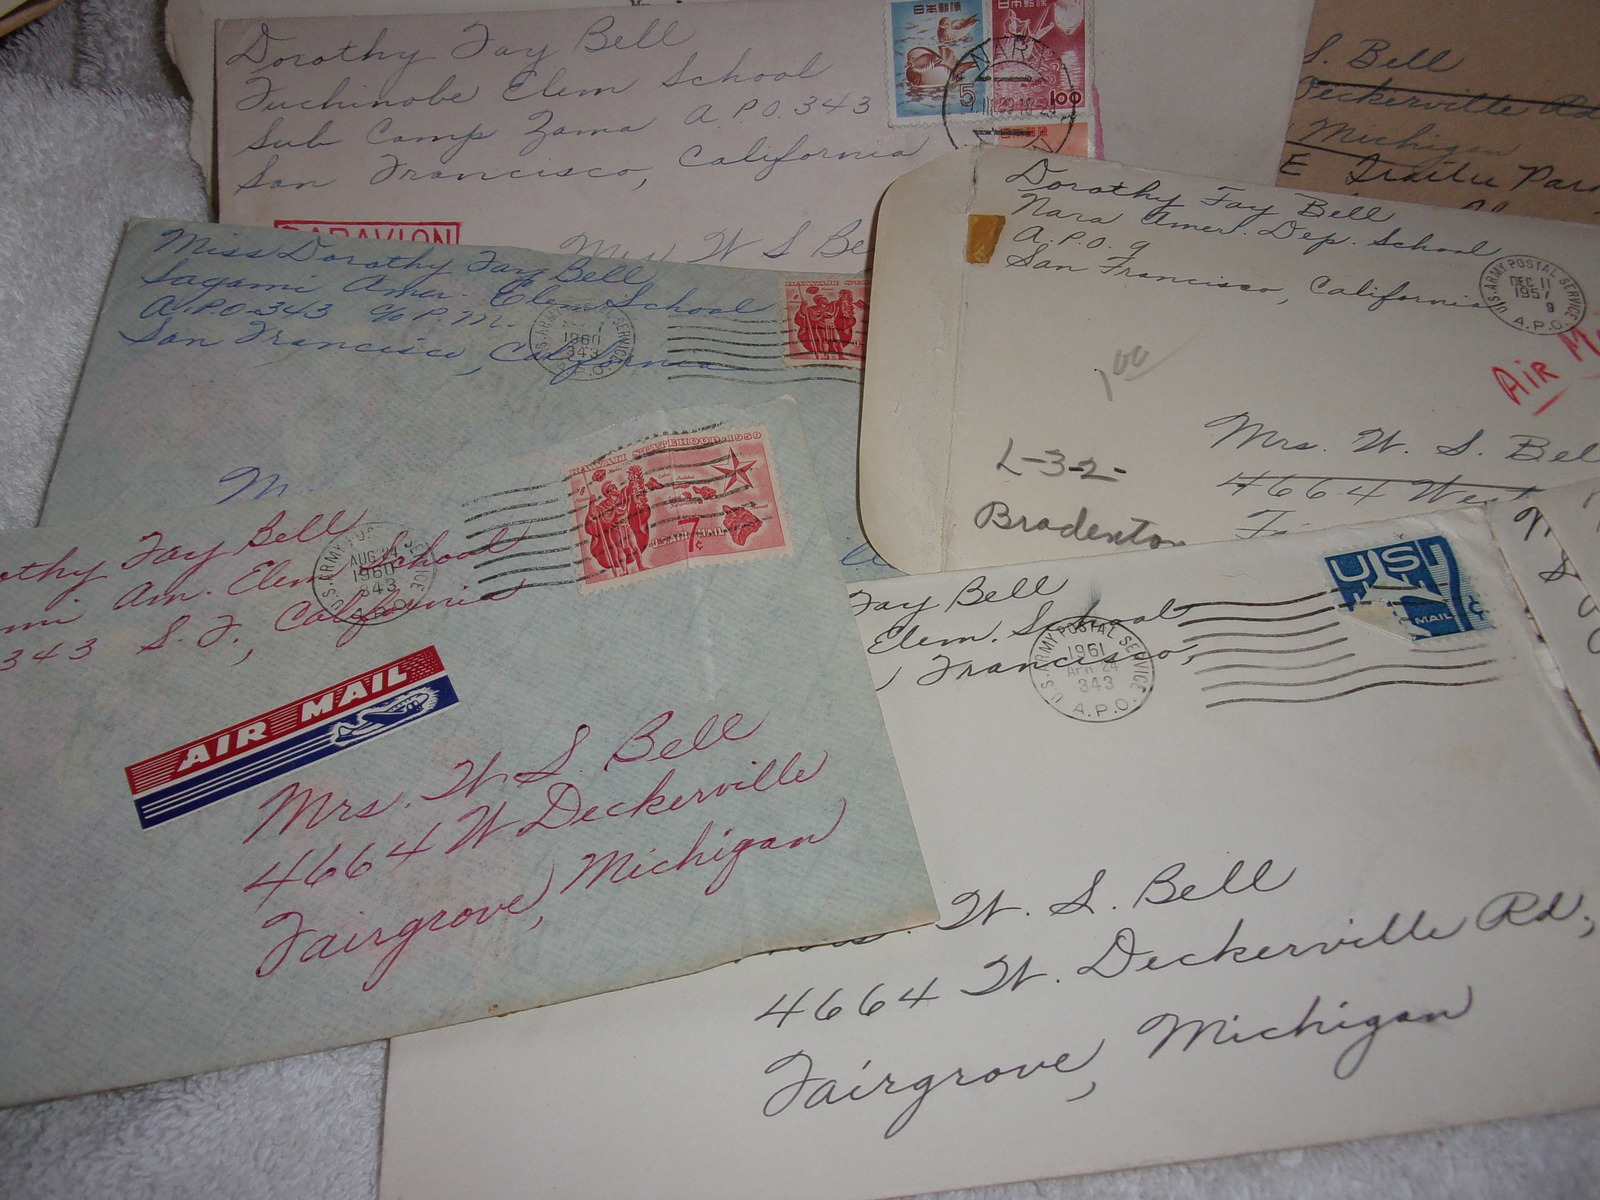 Dorothy Fay Bell
Fuchinobe Elem School
Sub Camp Zama A.P.O. 343
San Francisco, California
日本郵便
5
日本郵便
100
NARA
PAR AVION
Mrs W S Be
S. Bell
Deckerville Rd
Michigan
E Trailer Par
Miss Dorothy Fay Bell
Sagami Amer. Elem School
A.P.O. 343 c/o P.M.
San Francisco, California
U.S. ARMY POSTAL SERVICE
1960
343
A.P.O.
HAWAII STA
Dorothy Fay Bell
Nara Amer. Dep. School
A.P.O. 9
San Francisco, California
U.S. ARMY POSTAL SERVICE
DEC 11
1957
9
A.P.O.
AIR M
1 00
L-3-2-
Bradenton
Mrs. W. S. Bel
4664 West
Fi
M
othy Fay Bell
mi. Am. Elem. School
343 S. F., California
U.S. ARMY POSTAL SERVICE
AUG 24
1960
343
A.P.O.
HAWAII STATEHOOD·1959
7¢
U.S. AIR MAIL
AIR MAIL
Mrs. W. S. Bell
4664 W Deckerville
Fairgrove, Michigan
Fay Bell
Elem. School
Francisco,
U.S. ARMY POSTAL SERVICE
1961
APR 24
343
A.P.O.
US
MAIL
¢
W. S. Bell
4664 W. Deckerville Rd,
Fairgrove, Michigan